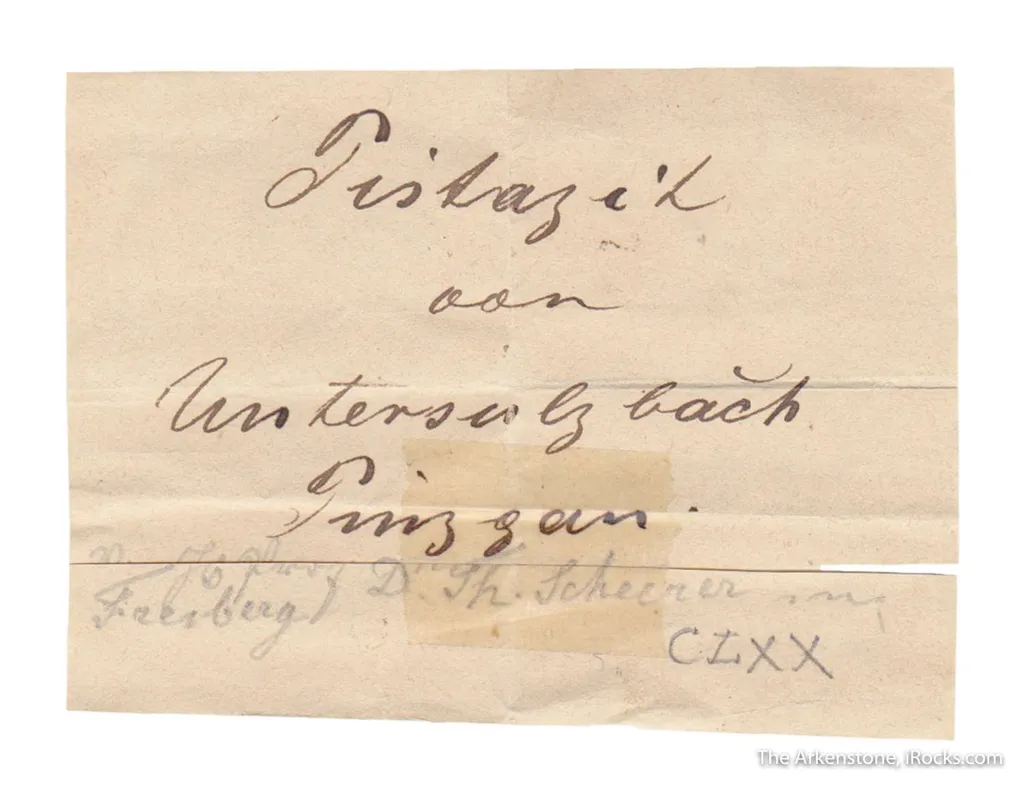 Pistazit
von
Untersulzbach
Pinzgau.
v. H. Prof. Dr. Th. Scheerer in
Freiberg)
CLXX
The Arkenstone, iRocks.com